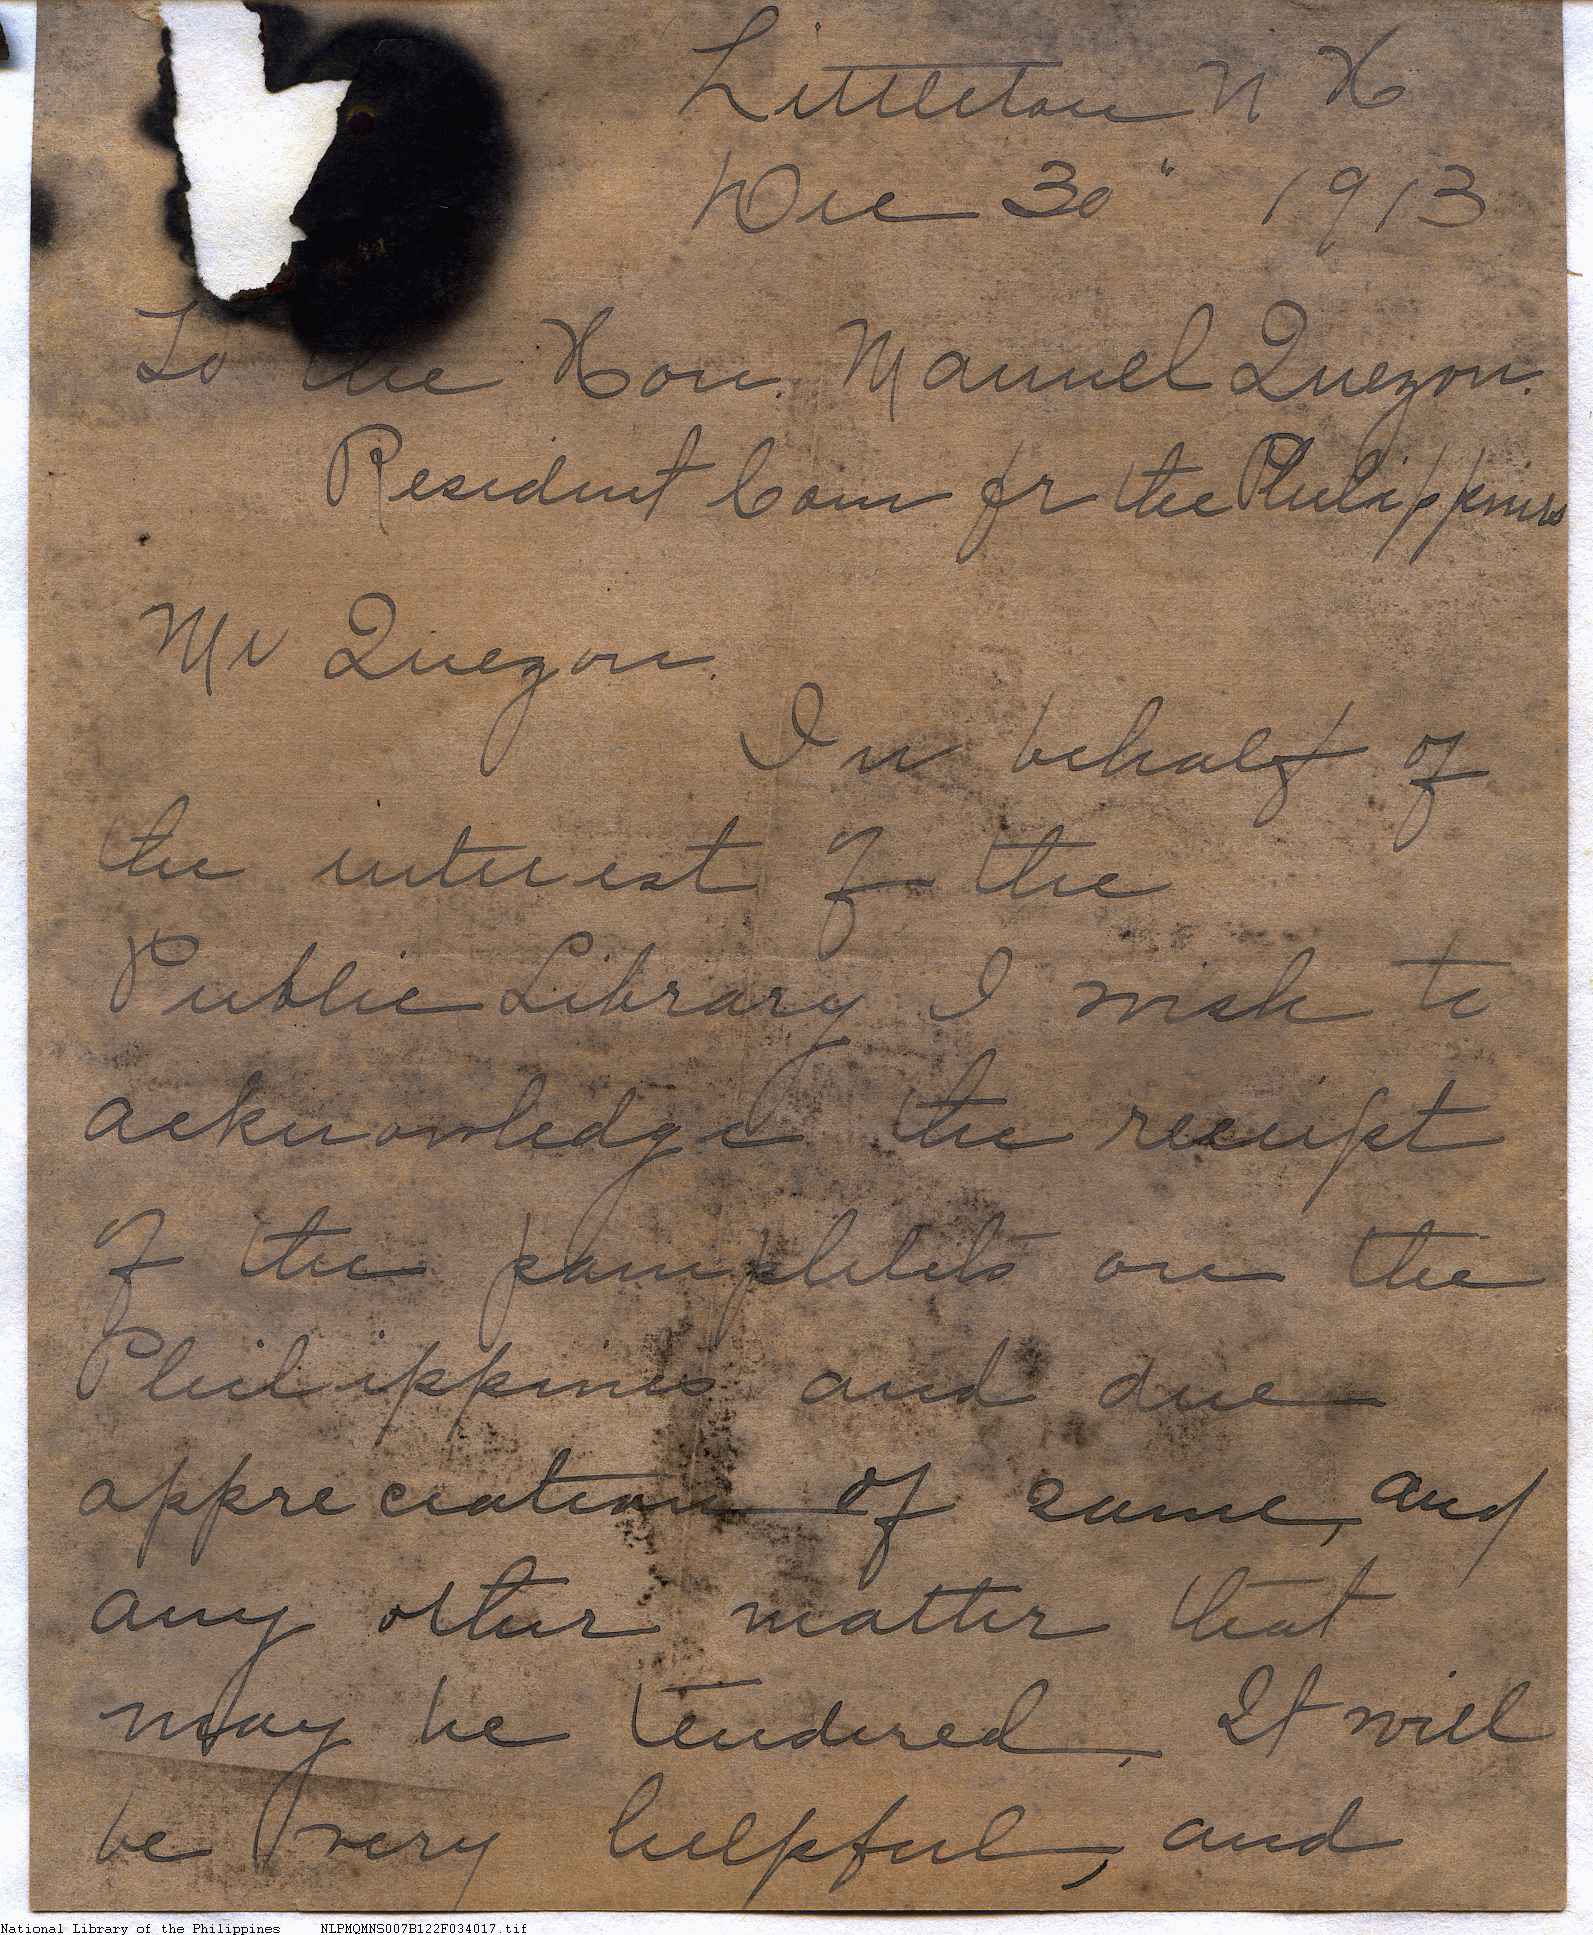 Littleton N H
Dec 30" 1913
To the Hon. Manuel Quezon.
Resident Com fr the Philippines
Mr Quezon.
In behalf of
the interest of the
Public Library I wish to
acknowledge the receipt
of the pamphlets on the
Philippines and due
appreciation of same, and
any other matter that
may be tendered. It will
be very helpful, and
National Library of the Philippines NLPMQMNS007B122F034017.tif